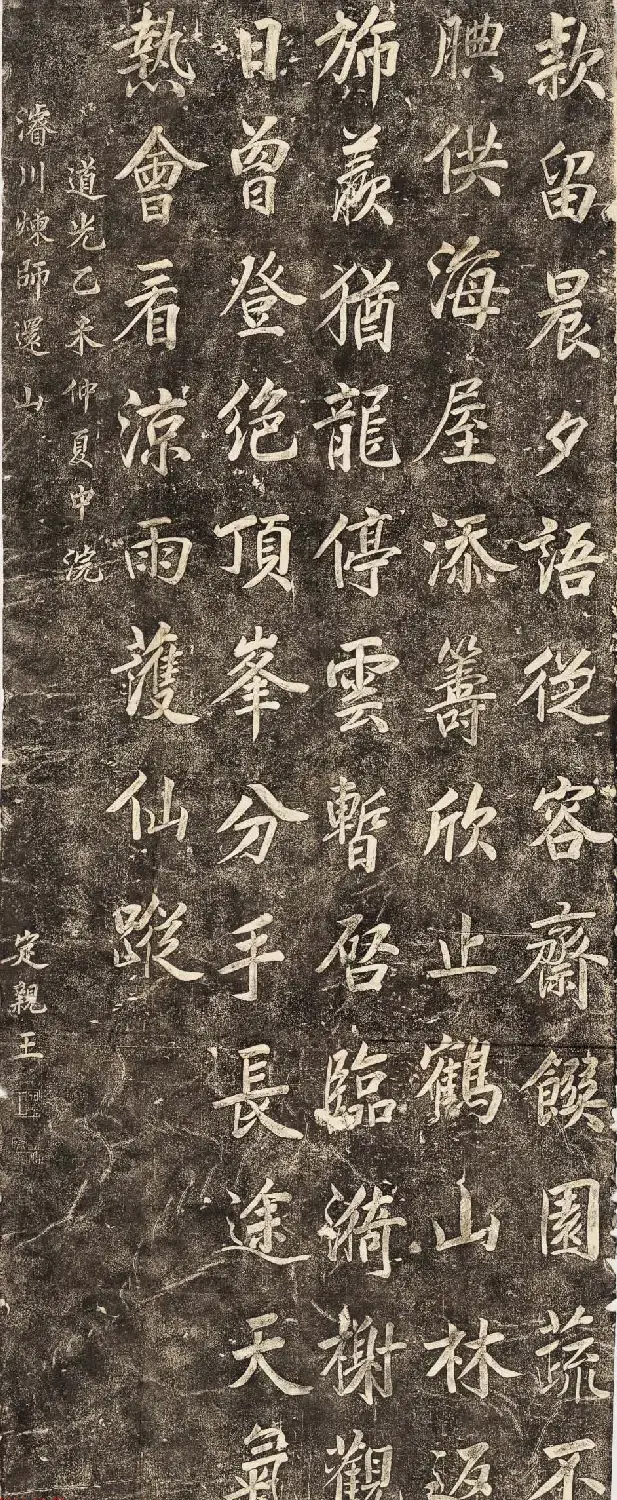 款留晨夕語從容齋饌園蔬不
腆供海屋添籌欣止鶴山林返
斾蕨猶龍停雲暫啓臨漪榭觀
日曾登絕頂峯分手長途天氣
熱會看涼雨護仙蹤
道光乙未仲夏中浣
濬川煉師還山
定親王